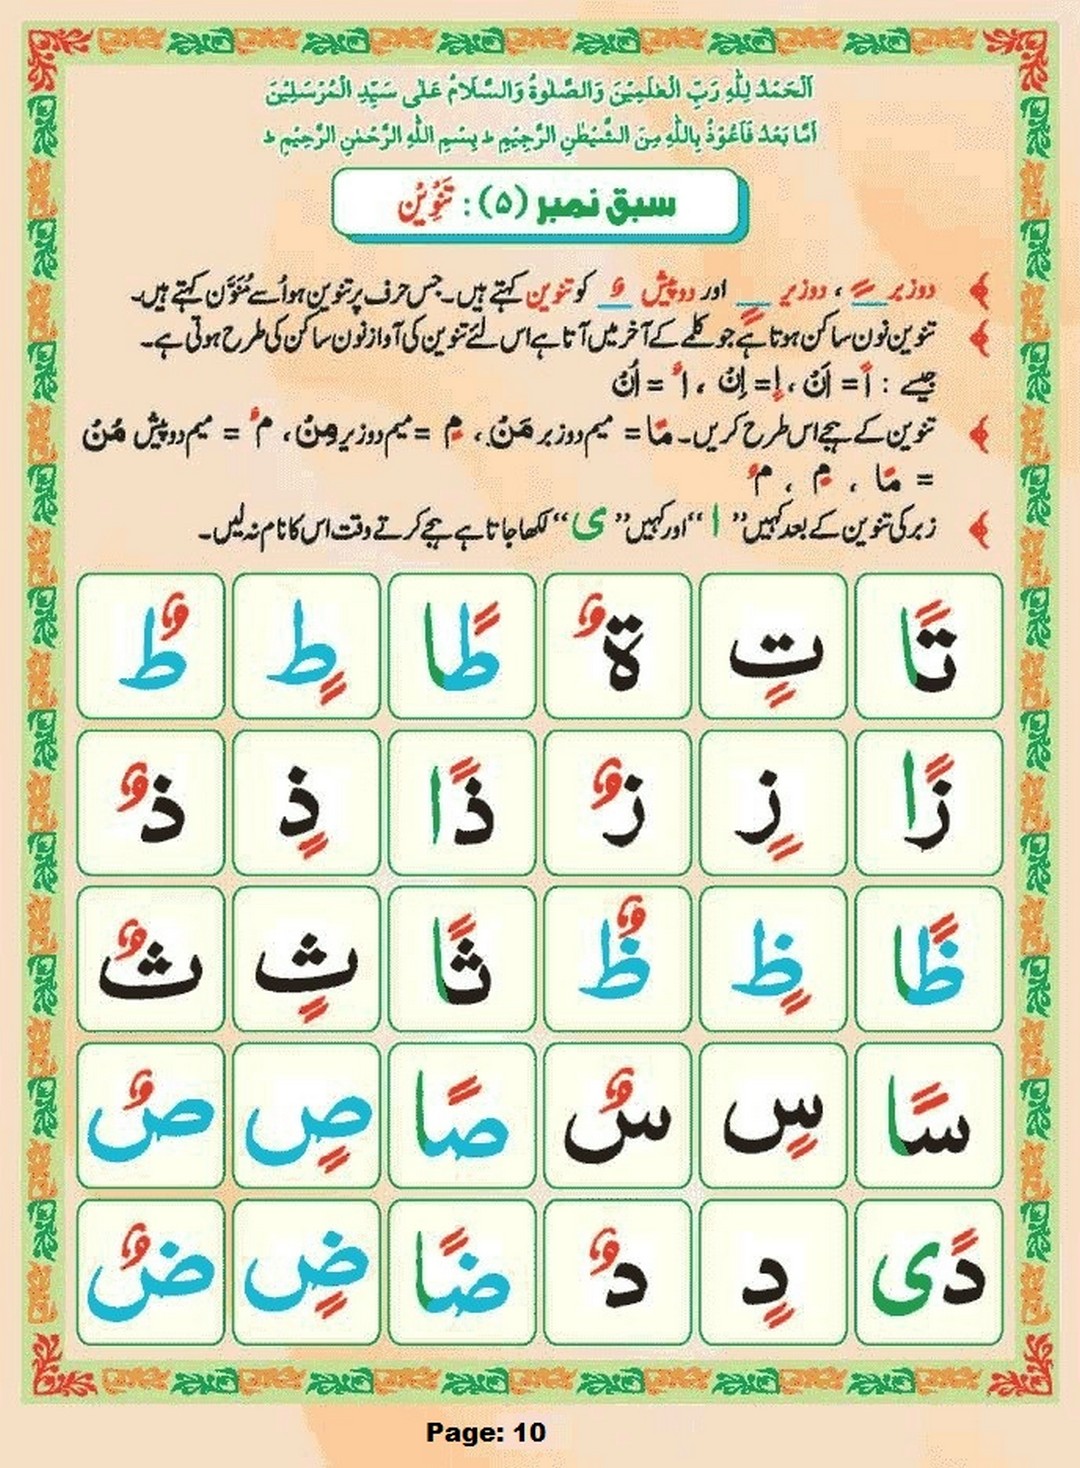 اَلْحَمْدُ لِلّٰهِ رَبِّ الْعٰلَمِيْنَ وَالصَّلٰوةُ وَالسَّلَامُ عَلٰى سَيِّدِ الْمُرْسَلِيْنَ
اَمَّا بَعْدُ فَاَعُوْذُ بِاللّٰهِ مِنَ الشَّيْطٰنِ الرَّجِيْمِ ط بِسْمِ اللّٰهِ الرَّحْمٰنِ الرَّحِيْمِ ط
سبق نمبر (۵) : تَنْوِيْن
دو زبر ـً ، دو زیر ـٍ اور دو پیش ـٌ کو تنوین کہتے ہیں۔ جس حرف پر تنوین ہو اُسے مُنَوَّن کہتے ہیں۔
تنوین نون ساکن ہوتا ہے جو کلمے کے آخر میں آتا ہے اس لئے تنوین کی آواز نون ساکن کی طرح ہوتی ہے۔
جیسے : اً = اَنْ ، اٍ = اِنْ ، اٌ = اُنْ
تنوین کے ہجے اس طرح کریں۔ مًا = میم دو زبر مَنْ ، مٍ = میم دو زیر مِنْ ، مٌ = میم دو پیش مُنْ
= مًا ، مٍ ، مٌ
زبر کی تنوین کے بعد کہیں ”ا“ اور کہیں ”ی“ لکھا جاتا ہے ہجے کرتے وقت اس کا نام نہ لیں۔
تًا تٍ ةٌ طًا طٍ طٌ
زًا زٍ زٌ ذًا ذٍ ذٌ
ظًا ظٍ ظٌ ثًا ثٍ ثٌ
سًا سٍ سٌ صًا صٍ صٌ
دًی دٍ دٌ ضًا ضٍ ضٌ
Page: 10